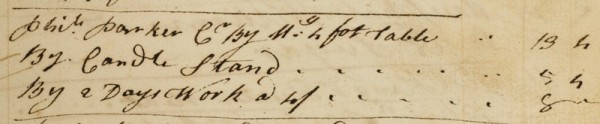 Phil. Parker Cr By 4 fot Table .. 13 4
By Candle Stand . . . . . . . 5 4
By 2 Days Work a 4/ . . . . . 8 "